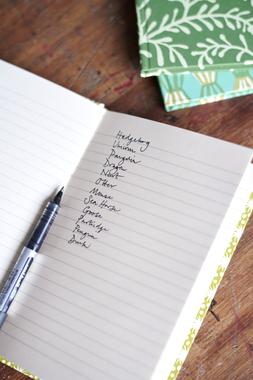 Hedgehog
Unicorn
Pangolin
Dragon
Newt
Otter
Mouse
Sea Horse
Goose
Partridge
Penguin
Duck